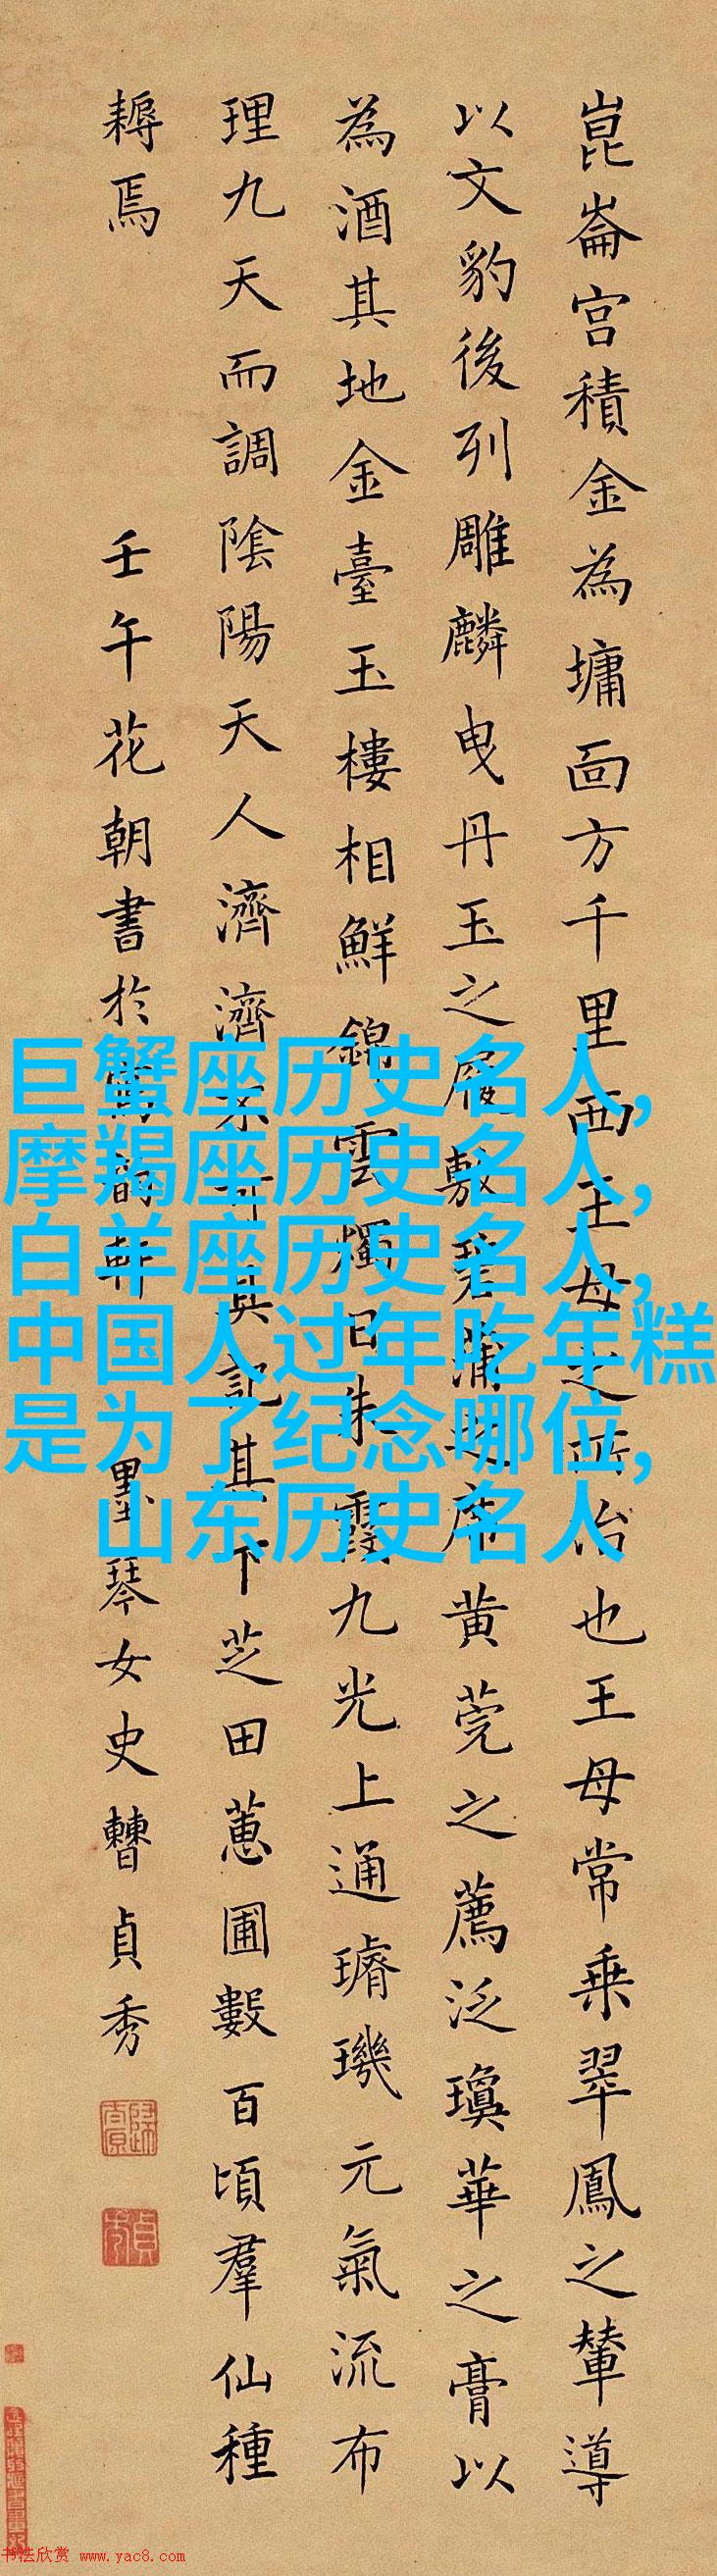 崑崙宮積金為墉面方千里西王母之所治也王母常乗翠鳳之輦導
以文豹後列雕麟曳丹玉之履敷碧蒲之席黄莞之薦泛瓊華之膏以
為酒其地金臺玉樓相鮮錦雲燭日朱霞九光上通璿璣元氣流布
理九天而調陰陽天人濟濟不可具記其下芝田蕙圃數百頃羣仙種
耨焉
壬午花朝書於寫韻軒 墨琴女史曹貞秀
巨蟹座历史名人,
摩羯座历史名人,
白羊座历史名人,
中国人过年吃年糕
是为了纪念哪位,
山东历史名人
书法欣赏 www.yac8.com